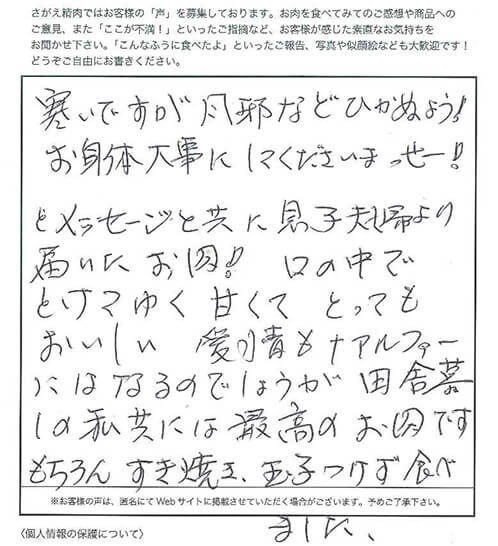 さがえ精肉ではお客様の「声」を募集しております。お肉を食べてみてのご感想や商品への
ご意見、また「ここが不満！」といったご指摘など、お客様が感じた素直なお気持ちを
お聞かせ下さい。「こんなふうに食べたよ」といったご報告、写真や似顔絵なども大歓迎です！
どうぞご自由にお書きください。
寒いですが風邪などひかぬよう!
お身体大事にしてくださいまっせー!!
とメッセージと共に息子夫婦より
届いたお肉!! 口の中で
とけてゆく 甘くて とっても
おいしい 愛情も+アルファー
にはなるのでしょうが 田舎暮
しの私共には最高のお肉です
もちろん すき焼き、玉子つけず食べ
※お客様の声は、匿名にてWebサイトに掲載させていただく場合がございます。予めご了承下さい。
ました、
〈個人情報の保護について〉